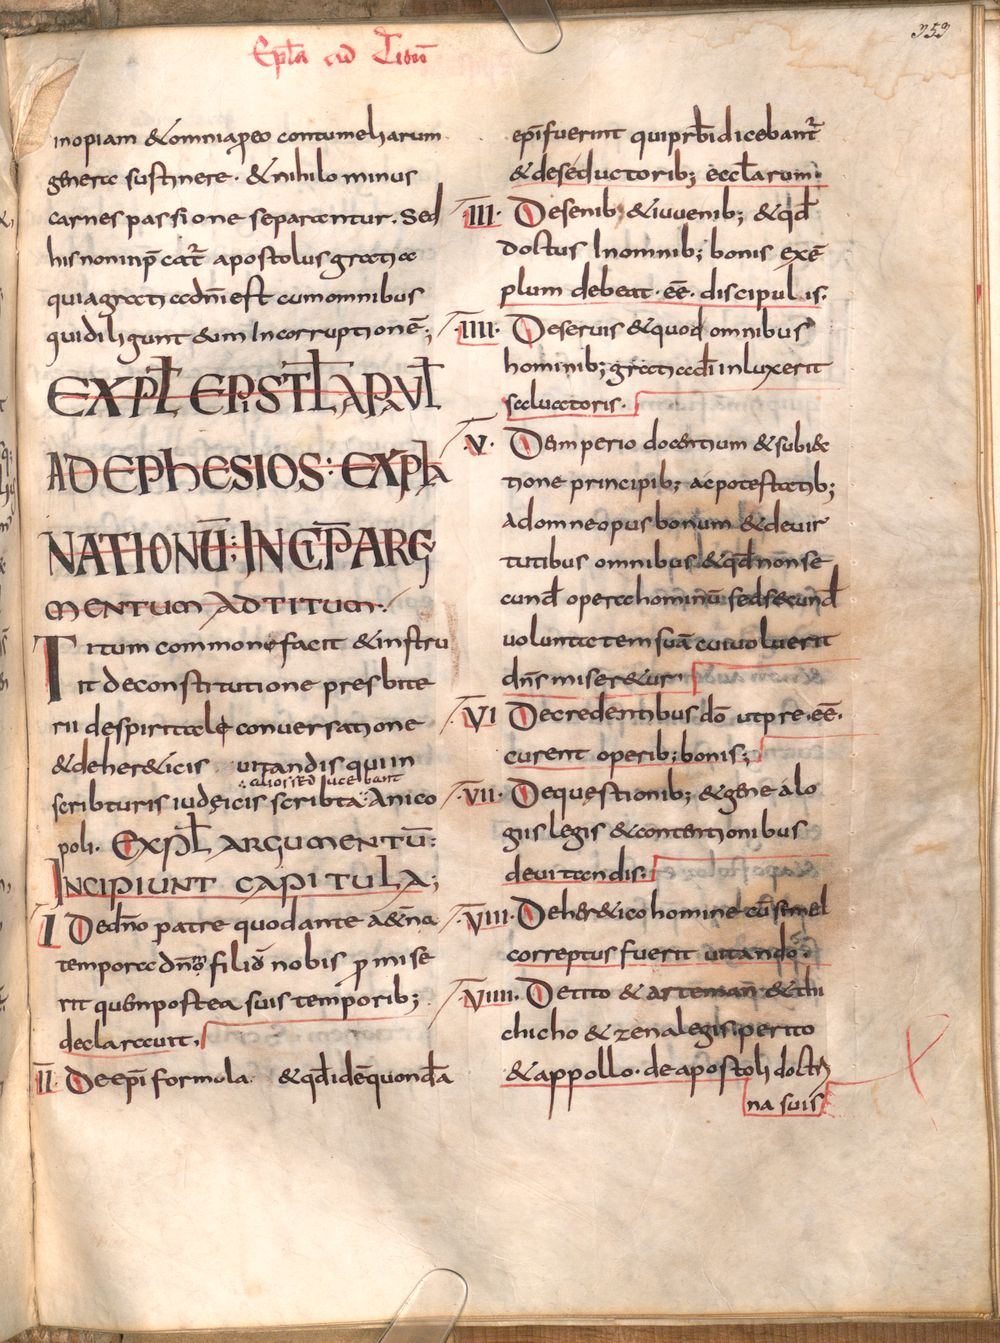 Epl̄a ad Titum̄
353
inopiam &omnia p eo contumeliarum
genera sustinere · & nihilo minus
carnes passione separantur. Sed
his non inp̄cat᷒ apostolus gratia
quia gratia dn̄i est cum omnibus
qui diligunt eum Incorruptionē;
EXPL̄ EPISTL̄A PAVL̄I
AD EPhESIOS: EXPLA
NATIONŪ; INCP̄ ARG
MENTUM AD TITUM:
Titum commonefacit &instru
it deconstitutione presbite
rii de spiritale conuersatione
& deher&icis uitandis qui in
scribturis iudęicis scribta: Anico
poli. EXPL̄ ARGUMENTŪ:
INCIPIUNT CAPITULA;
I De dn̄o patre quod ante
tempora filiū nobis p mise
rit quem postea suis temporib;
declarauit.
II De epī formula & qd̄
epī fuerint qui
& deseductoribus; eccl̄arum:
III· Desenib; & iuuenib; & qd̄
doctus Inomnib; bonis exē
plum debeat · eē · discipulis.
IIII· Deseruis & quod omnibus
hominib; gratia dī inluxerit
saluatoris.
V· De imperio docentium & subiec
tione principib; ac potestatib;
Ad omne opus bonum & deuir
tutibus omnibus & qd̄ non se
cund̄ opera hominū sed secund̄
uoluntatem suā cui uoluerit
dn̄s miser&ur
VI Decredentibus dō ut pre·eē·
curent operib; bonis;
VII· Dequęstionib; & genealo
giis legis & contentionibus
deuitandis:
VIII· De her&ico homine cū semel
correptus fuerit uitando:
VIIII· De tito & arteman & thi
chicho & zena legis perito
& appollo · de apostoli doctri
na suis